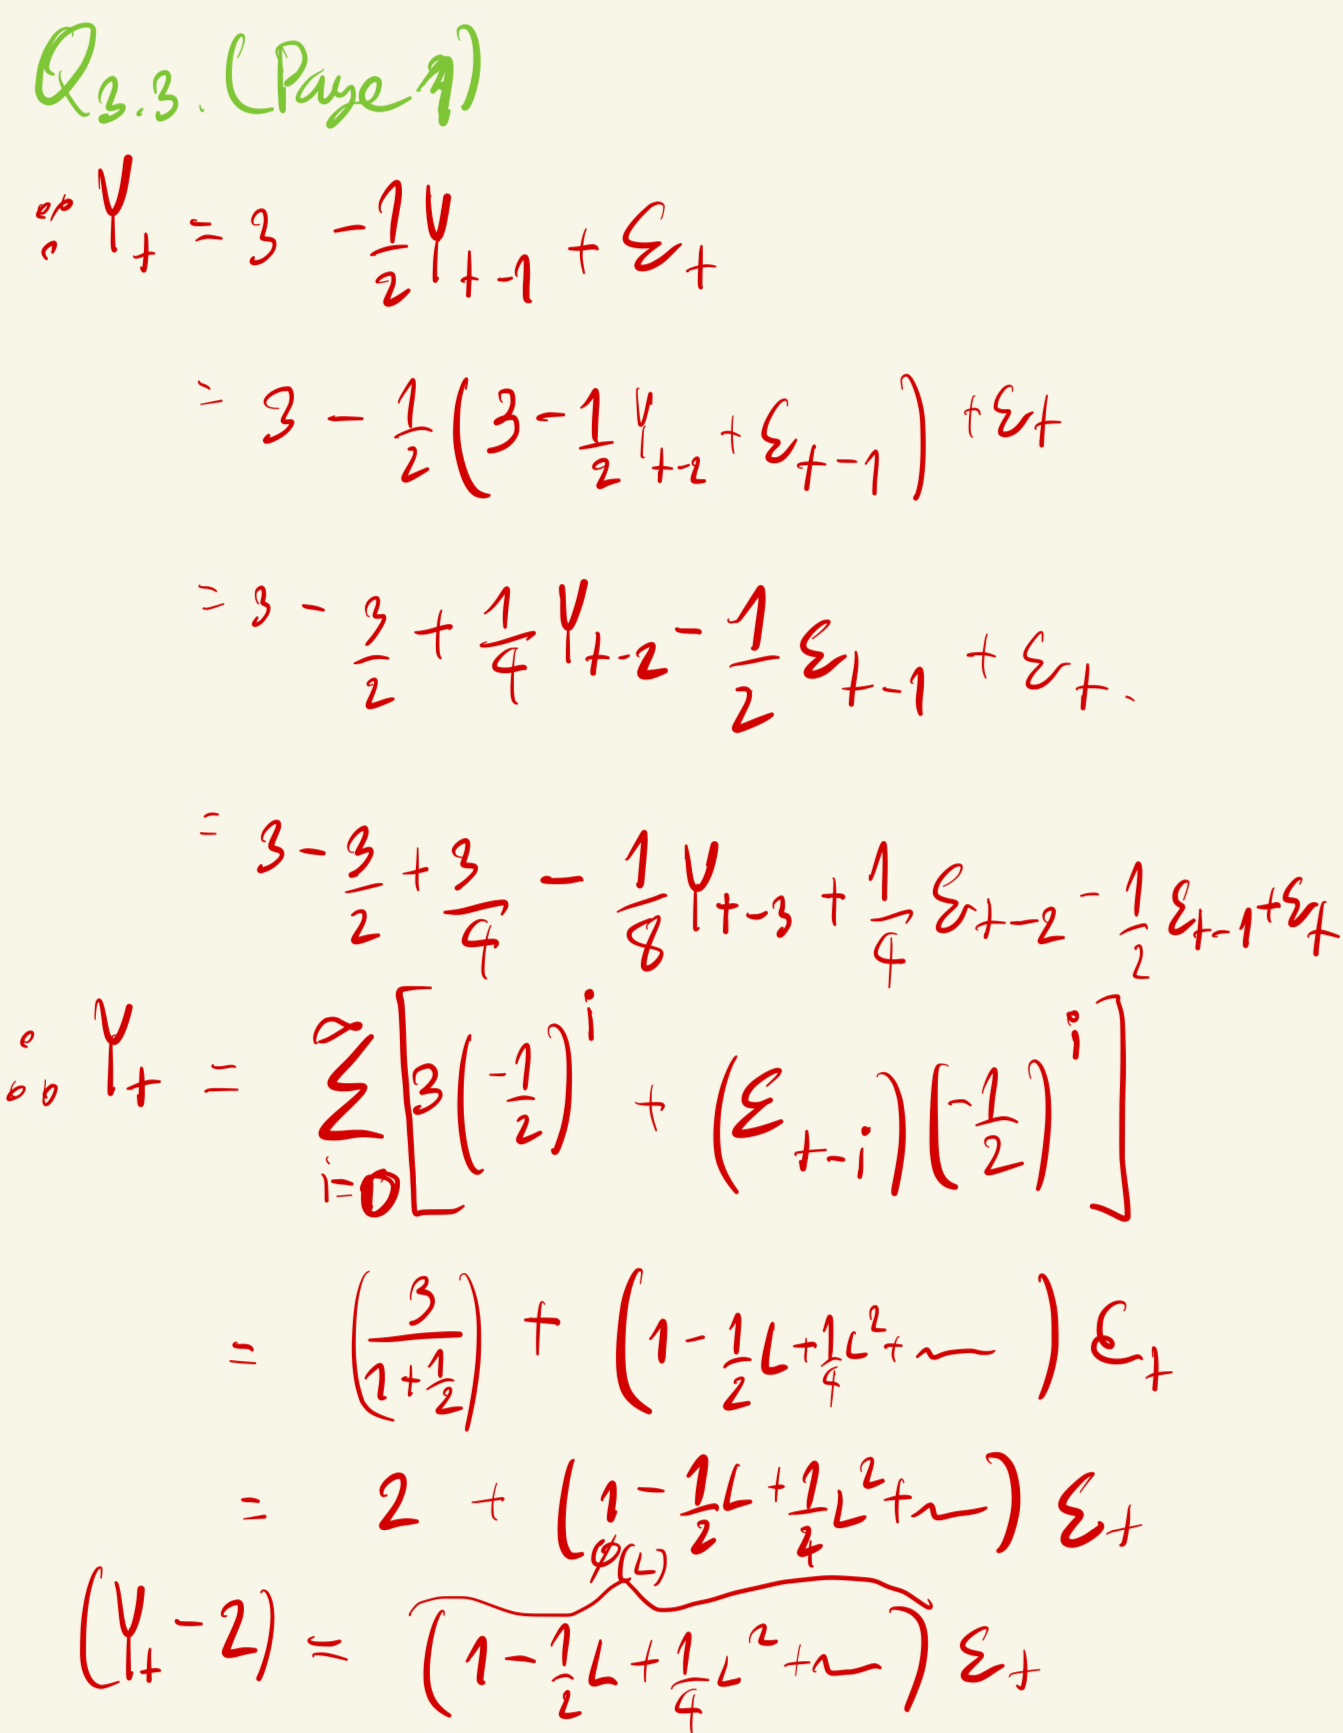 Q3.3. (Page 1)
∵ Y_t = 3 - 1/2 Y_{t-1} + ε_t
= 3 - 1/2 (3 - 1/2 Y_{t-2} + ε_{t-1}) + ε_t
= 3 - 3/2 + 1/4 Y_{t-2} - 1/2 ε_{t-1} + ε_t.
= 3 - 3/2 + 3/4 - 1/8 Y_{t-3} + 1/4 ε_{t-2} - 1/2 ε_{t-1} + ε_t
∴ Y_t = ∑_{i=0}^{∞} [3(-1/2)^i + (ε_{t-i})(-1/2)^i]
= (3/(1+1/2)) + (1 - 1/2 L + 1/4 L^2 + ~) ε_t
= 2 + (1 - 1/2 L + 1/4 L^2 + ~) ε_t
φ(L)
(Y_t - 2) = (1 - 1/2 L + 1/4 L^2 + ~) ε_t